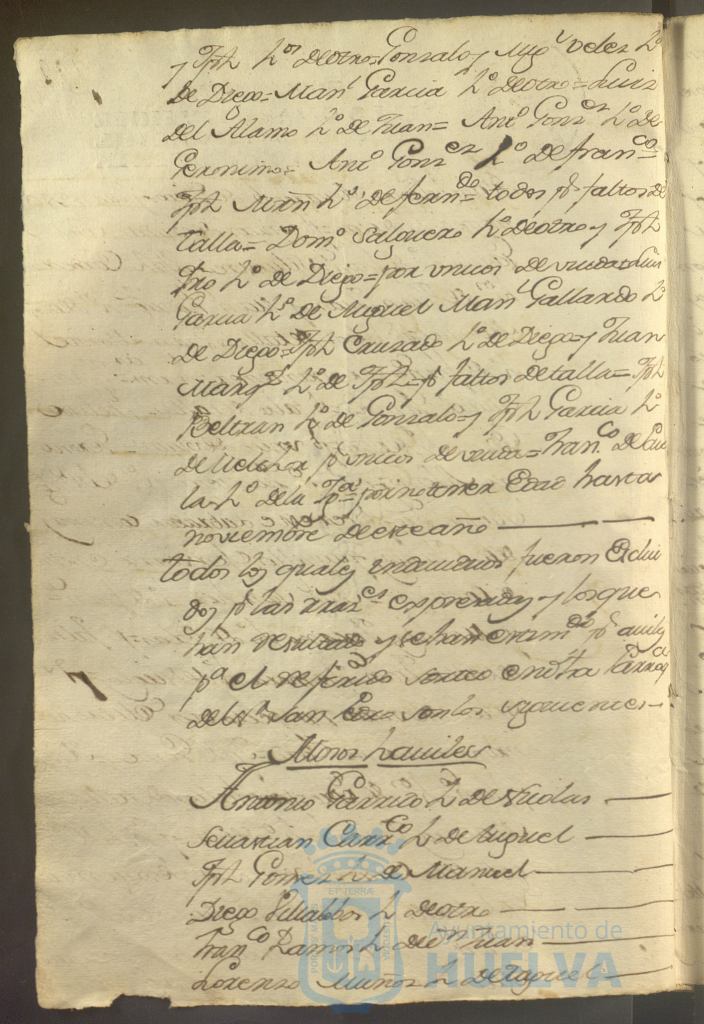 y Jph h.os de otro= Gonzalo y Mig.l Velez h.o
de Diego= Man.l Garcia h.o de otro= Luis
del Alamo h.o de Juan= Ant.o Gonz.ez h.o de
Geronimo= Ant.o Gonz.ez h.o de fran.co=
Jph Mrñ h.o de fern.do= todos p.r faltos de
talla= Dom.o Salguero h.o de otro y Jph
h.o de Diego= por unicos de viudas= Luis
Garcia h.o de Miguel Man.l Gallardo h.o
de Diego= Jph Cruzado h.o de Diego= y Juan
Marq.z h.o de Jph= p.r faltos de talla= Jph
Beltran h.o de Gonzalo= y Jph Garcia h.o
de Melchor p.r unicos de viuda= Fran.co de
la h.o de la por no tener edad hasta
noviembre de este año
todos los quales individuos, fueron exclui
dos p.r las raz.es expresadas y los que
han resultado y se han p.r aviles
p.a el referido sorteo en otra Parroq.a
del S.r San Pedro son los siguientes
Mosos havilesr
Antonio Garrido h.o de Nicolas
Sevastian Carr.co h.o de Miguel
Jph Gomez h.o de Manuel
Diego Villalbos h.o de otro
Fran.co Ramos h.o de Juan
Lorenzo Muños h.o de Miguel
Ayuntamiento de
HUELVA